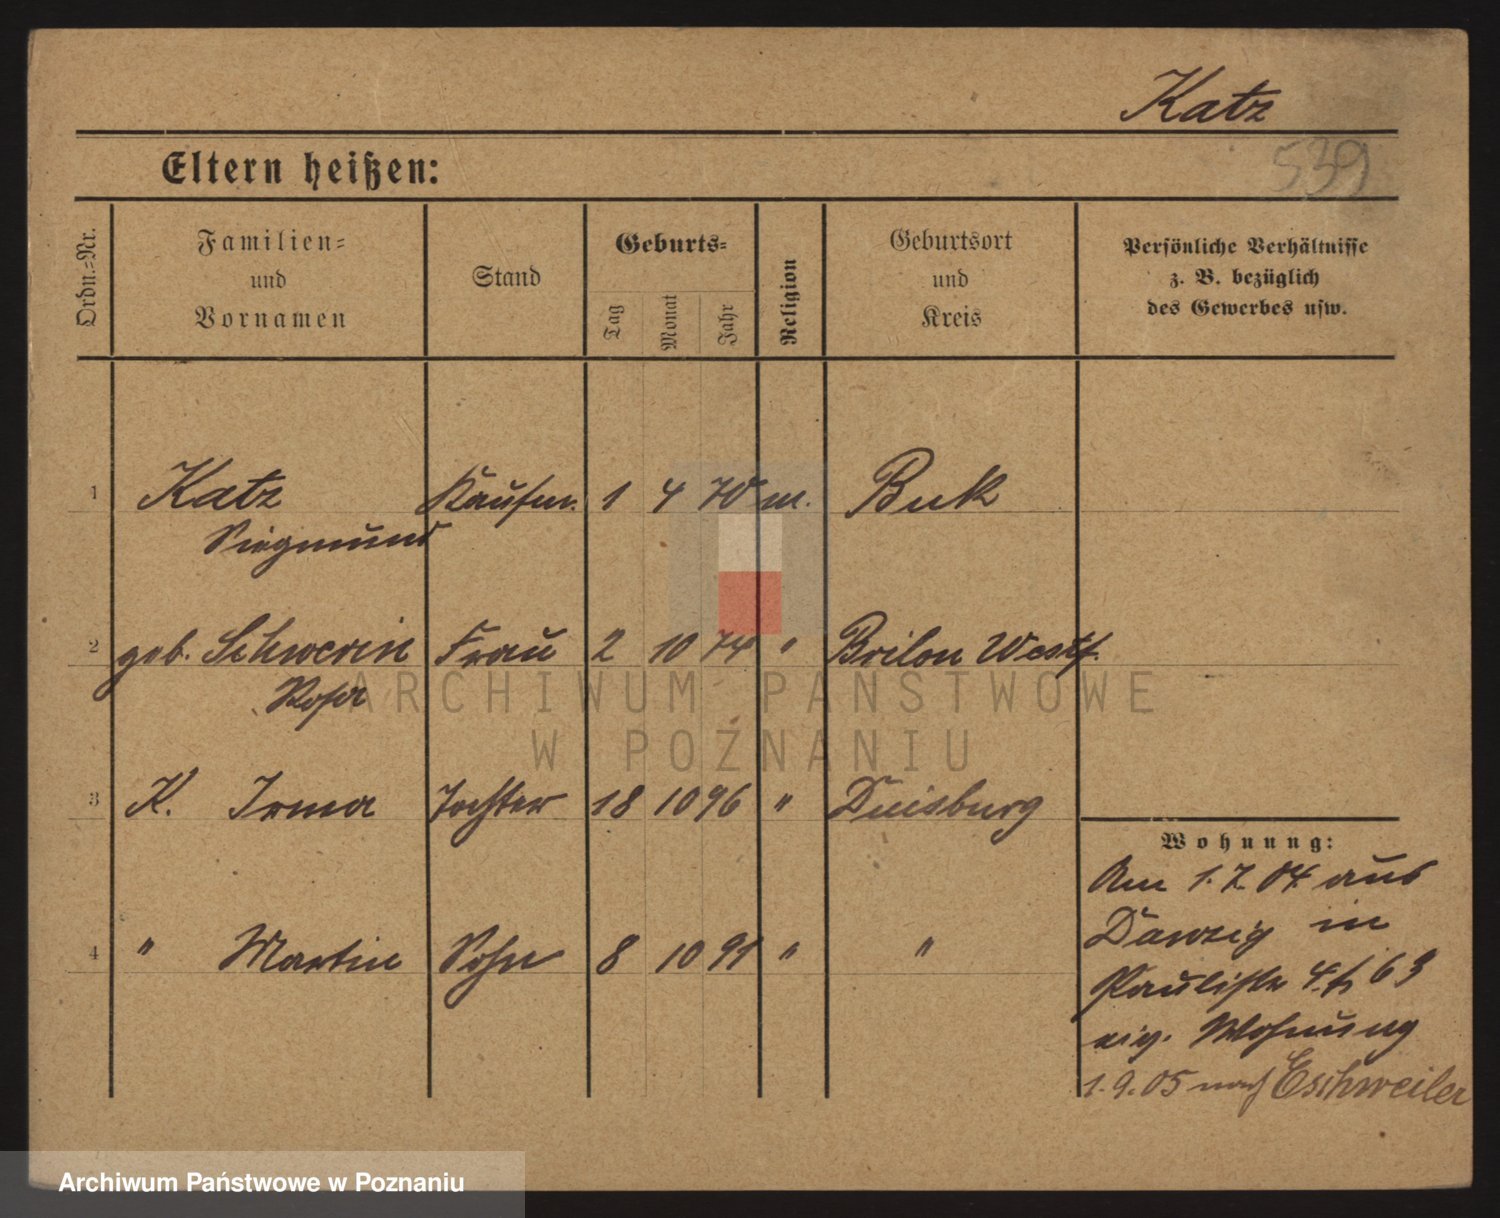 Katz
539
Eltern heißen:
Ordn.-Nr. Familien- und Vornamen Stand Geburts- Tag Monat Jahr Religion Geburtsort und Kreis Persönliche Verhältnisse z. B. bezüglich des Gewerbes usw.
1 Katz Kaufm. 1 4 70 m. Buk
Siegmund
2 geb. Schwerin Frau 2 10 74 " Brilon Westf.
Rosa
3 K. Irma Tochter 18 10 96 " Duisburg
Wohnung:
Am 1.7.04 aus
4 " Martin Sohn 8 10 91 " "
Danzig in
63
eig. Wohnung
1.9.05 nach Eschweiler
ARCHIWUM PAŃSTWOWE
W POZNANIU
Archiwum Państwowe w Poznaniu